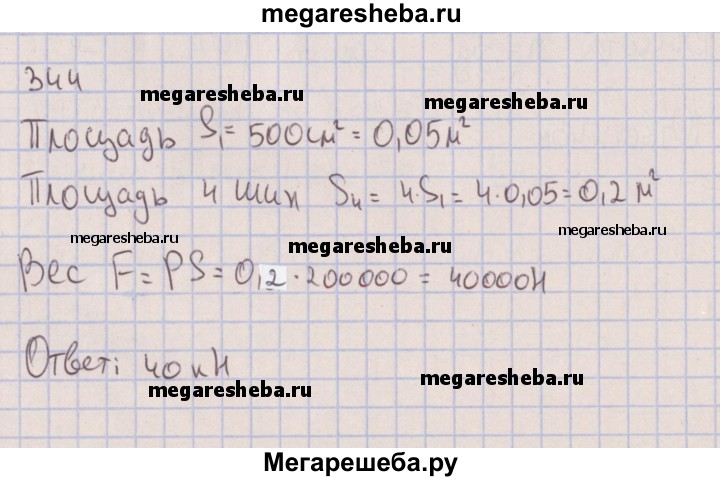 megaresheba.ru
344
megaresheba.ru
megaresheba.ru
Площадь S₁ = 500см² = 0,05м²
Площадь 4 шин S₄ = 4·S₁ = 4·0,05 = 0,2 м²
megaresheba.ru
megaresheba.ru
megaresheba.ru
Вес F = PS = 0,2 · 200000 = 40000Н
Ответ: 40 кН
megaresheba.ru
megaresheba.ru
Мегарешеба.ру